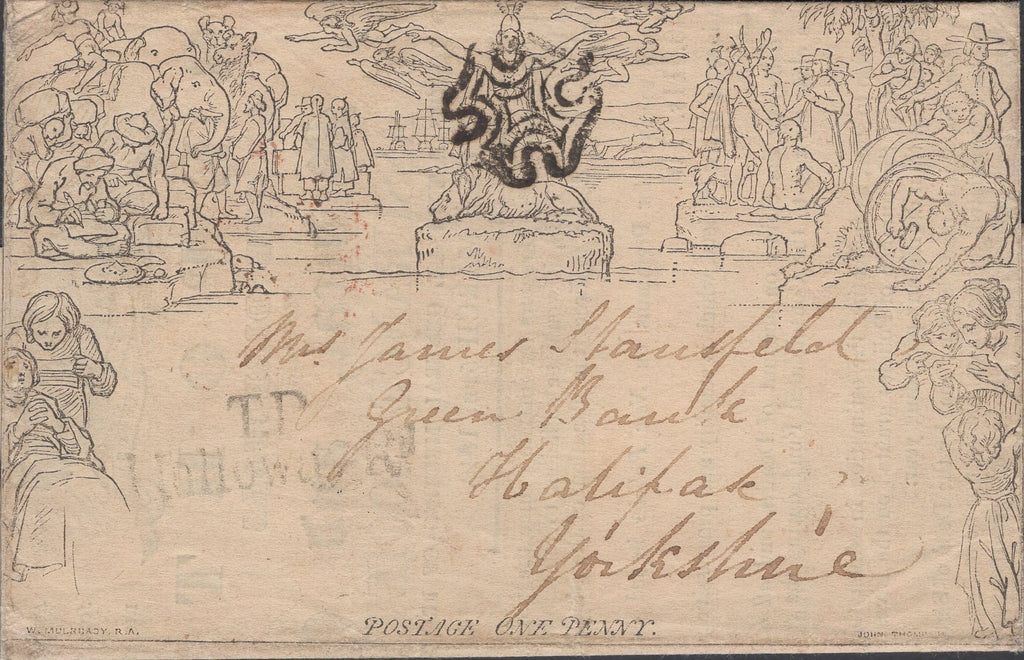 Mrs James Stansfeld
Green Bank
Halifax
Yorkshire
T.P
Holloway
W. MULREADY. R.A.
POSTAGE ONE PENNY.
JOHN THOMPSON